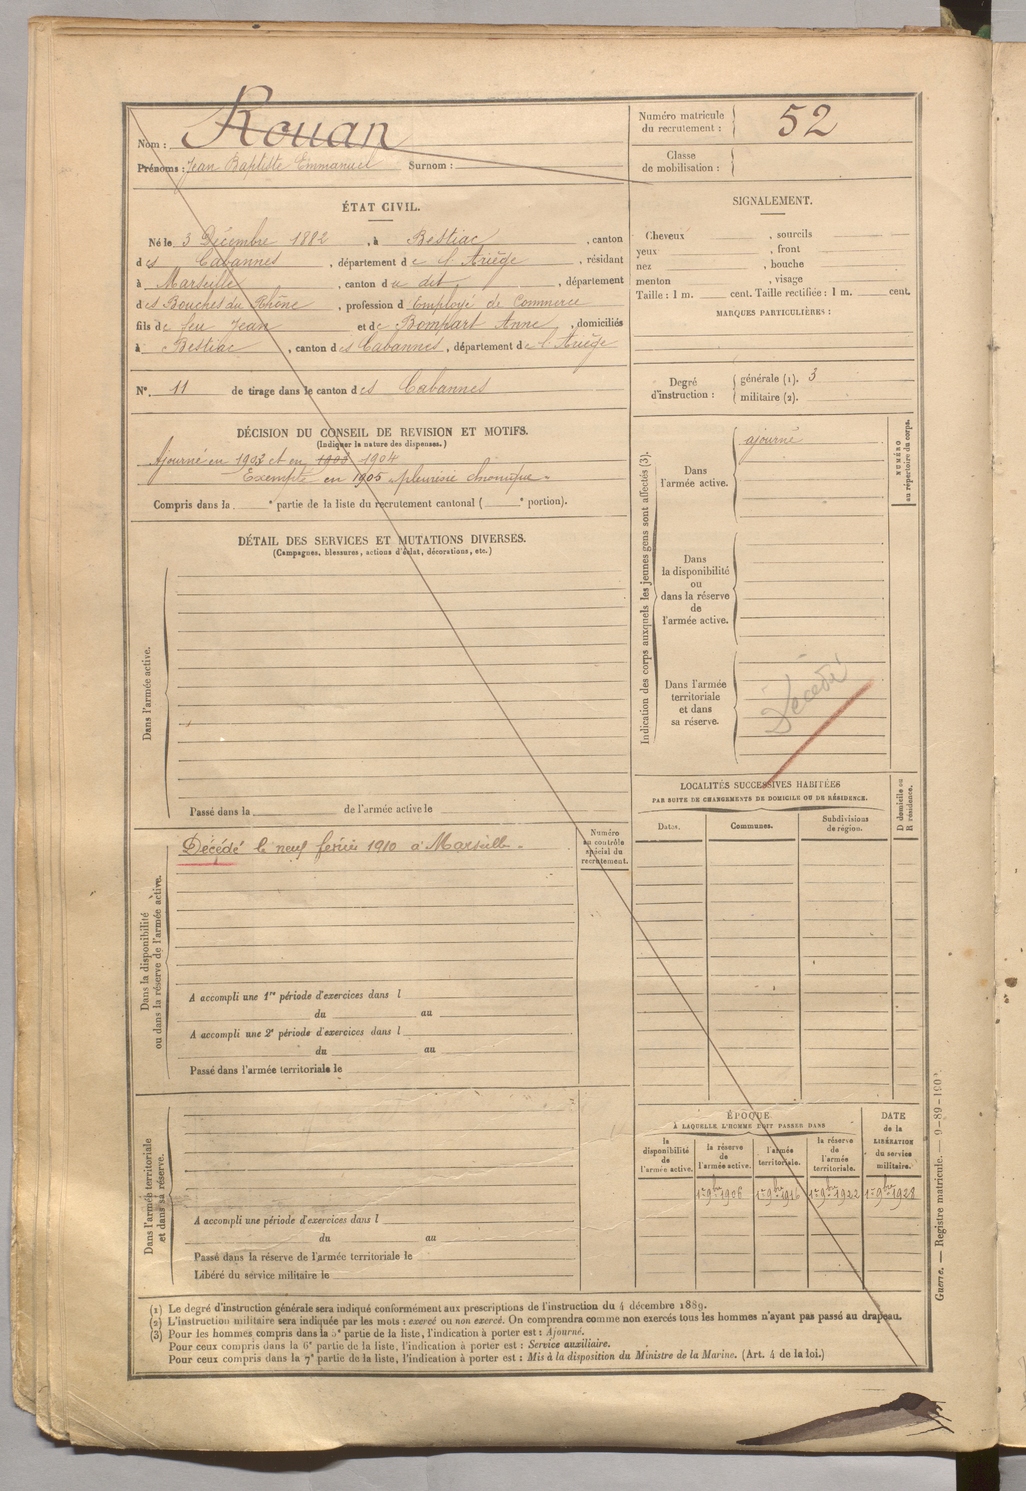 Nom : Rouan
Prénoms : Jean Baptiste Emmanuel Surnom :
Numéro matricule du recrutement : 52
Classe de mobilisation :
ÉTAT CIVIL.
Né le 3 Décembre 1882, à Bestiac, canton
des Cabannes, département de l'Ariège, résidant
à Marseille, canton du dit, département
des Bouches du Rhône, profession d'Employé de Commerce
fils de feu Jean et de Bompart Anne, domiciliés
à Bestiac, canton des Cabannes, département de l'Ariège
N° 11 de tirage dans le canton des Cabannes
SIGNALEMENT.
Cheveux , sourcils
yeux , front
nez , bouche
menton , visage
Taille : 1 m. cent. Taille rectifiée : 1 m. cent.
MARQUES PARTICULIÈRES :
Degré d'instruction : générale (1). 3
militaire (2).
DÉCISION DU CONSEIL DE REVISION ET MOTIFS.
(Indiquer la nature des dispenses.)
Ajourné en 1903 et en 1903 1904
Exempté en 1905 pleurésie chronique.
Compris dans la e partie de la liste du recrutement cantonal ( e portion).
DÉTAIL DES SERVICES ET MUTATIONS DIVERSES.
(Campagnes, blessures, actions d'éclat, décorations, etc.)
Dans l'armée active.
Passé dans la de l'armée active le
Indication des corps auxquels les jeunes gens sont affectés (3).
NUMÉRO au répertoire du corps.
Dans l'armée active.
ajourné
Dans la disponibilité ou dans la réserve de l'armée active.
Dans l'armée territoriale et dans sa réserve.
Décédé
LOCALITÉS SUCCESSIVES HABITÉES
PAR SUITE DE CHANGEMENTS DE DOMICILE OU DE RÉSIDENCE.
D domicile ou R résidence.
Dates. Communes. Subdivisions de région.
Dans la disponibilité ou dans la réserve de l'armée active.
Numéro au contrôle spécial du recrutement.
Décédé le neuf février 1910 à Marseille.
A accompli une 1re période d'exercices dans l
du au
A accompli une 2e période d'exercices dans l
du au
Passé dans l'armée territoriale le
Dans l'armée territoriale et dans sa réserve.
A accompli une période d'exercices dans l
du au
Passé dans la réserve de l'armée territoriale le
Libéré du service militaire le
ÉPOQUE
À LAQUELLE L'HOMME DOIT PASSER DANS
la disponibilité de l'armée active.
la réserve de l'armée active.
l'armée territoriale.
la réserve de l'armée territoriale.
DATE de la LIBÉRATION du service militaire.
1er 9bre 1906 1er 9bre 1916 1er 9bre 1922 1er 9bre 1928
(1) Le degré d'instruction générale sera indiqué conformément aux prescriptions de l'instruction du 4 décembre 1889.
(2) L'instruction militaire sera indiquée par les mots : exercé ou non exercé. On comprendra comme non exercés tous les hommes n'ayant pas passé au drapeau.
(3) Pour les hommes compris dans la 5e partie de la liste, l'indication à porter est : Ajourné.
Pour ceux compris dans la 6e partie de la liste, l'indication à porter est : Service auxiliaire.
Pour ceux compris dans la 7e partie de la liste, l'indication à porter est : Mis à la disposition du Ministre de la Marine. (Art. 4 de la loi.)
Guerre. — Registre matricule. —